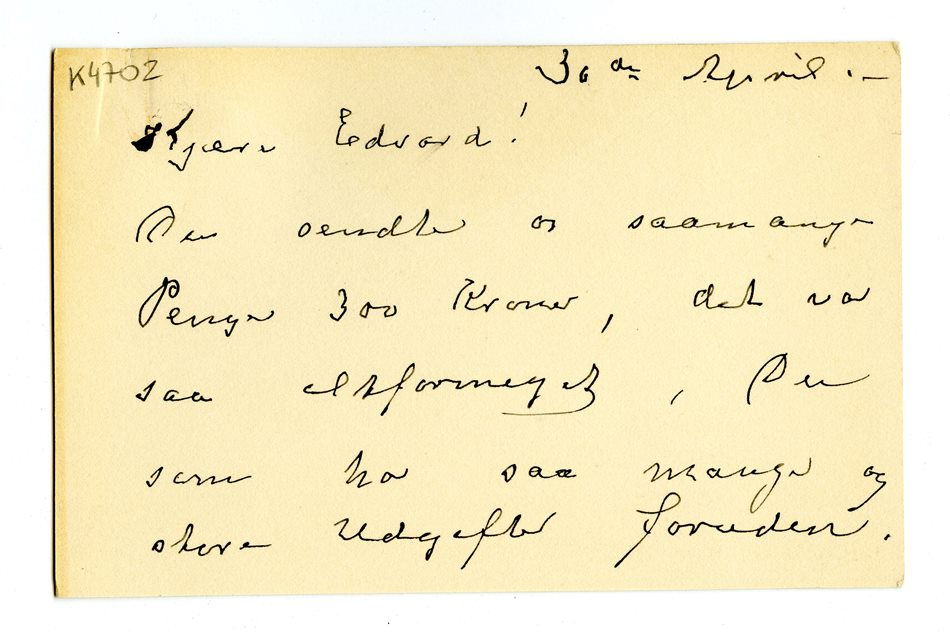 K4702
30de April. –
Kjære Edvard!
Du sendte os saamange
Penge 300 Kroner, det var
saa altformeget, Du
som har saa mange og
store Udgifter foruden.